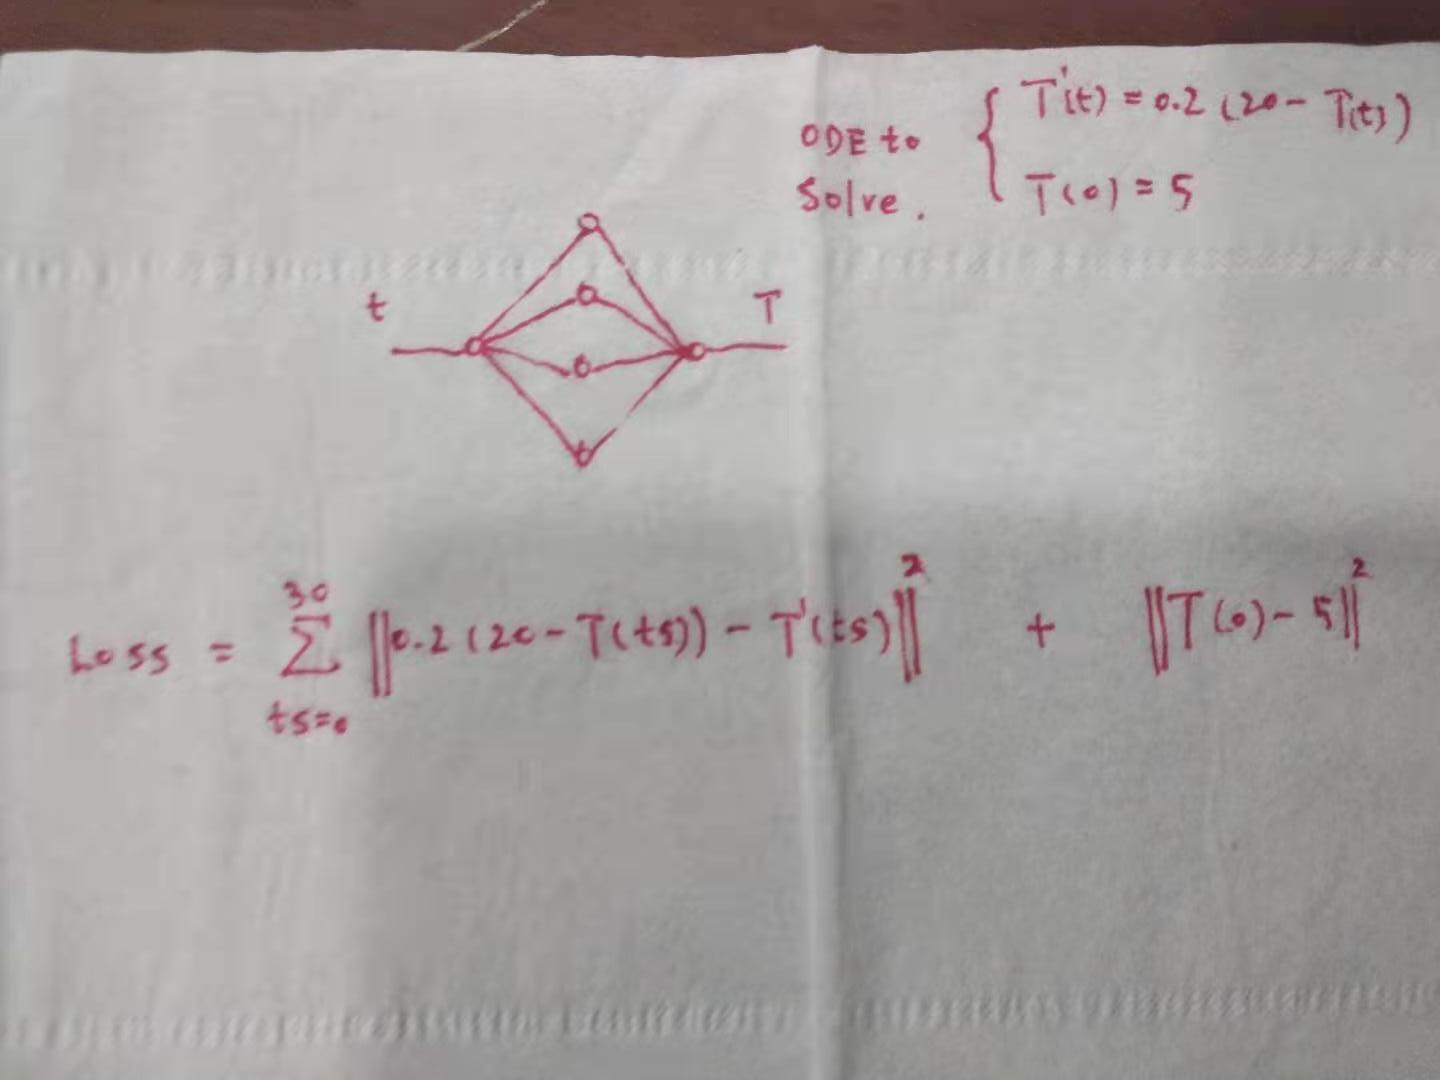 ODE to
Solve.
T'(t) = 0.2 (20 - T(t))
T(0) = 5
t
T
Loss = ∑_{ts=0}^{30} ‖0.2 (20 - T(ts)) - T'(ts)‖² + ‖T(0) - 5‖²